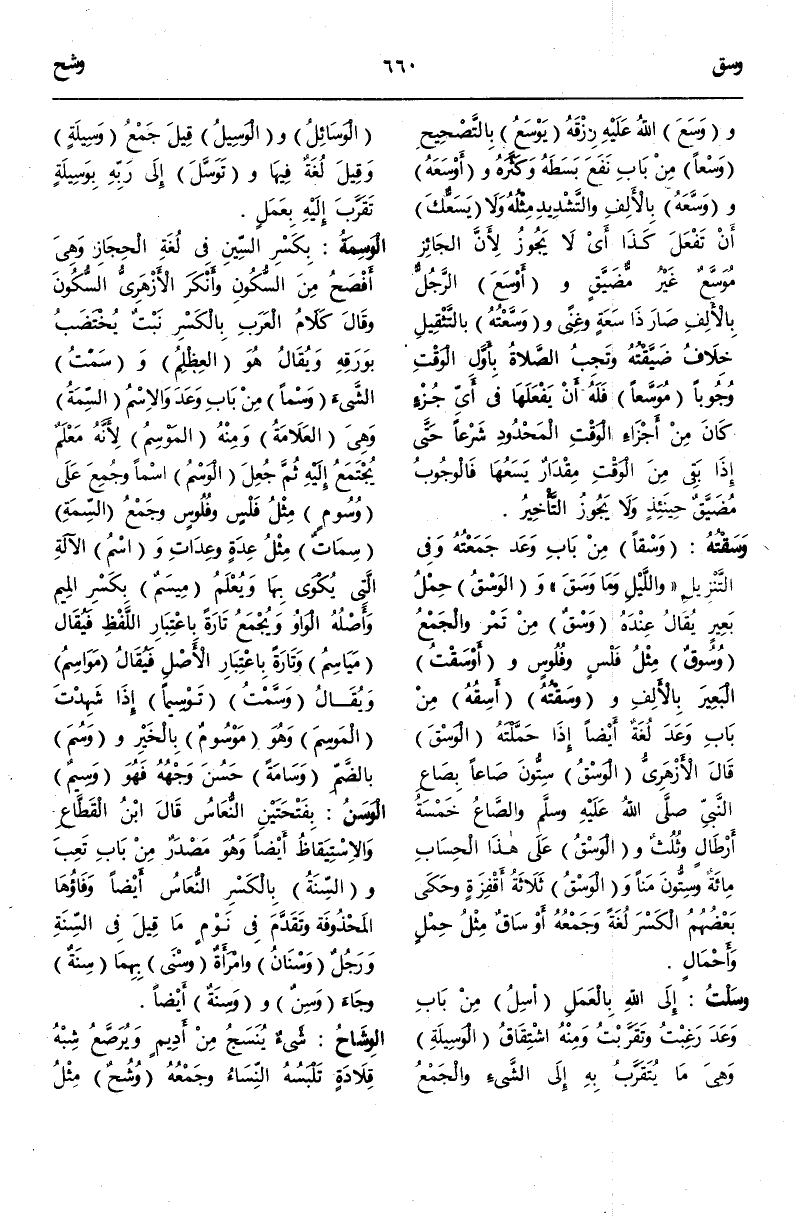 وسق ٦٦٠ وشح
و ( وَسَعَ ) اللهُ عَلَيْهِ رِزْقَهُ ( يَوْسَعُ ) بِالتَّصْحِيحِ
( وَسْعاً ) مِنْ بَابِ نَفَعَ بَسَطَهُ وَكَثَّرَهُ و ( أَوْسَعَهُ )
و ( وَسَّعَهُ ) بِالْأَلِفِ والتَّشْدِيدِ مِثْلُهُ وَلَا ( يَسَعُكَ )
أَنْ تَفْعَلَ كَذَا أَىْ لَا يَجُوزُ لِأَنَّ الجَائِزَ
مُوَسَّعٌ غَيْرُ مُضَيَّقٍ و ( أَوْسَعَ ) الرَّجُلُ
بِالْأَلِفِ صَارَ ذَا سَعَةٍ وغِنًى و ( وَسَّعْتُهُ ) بالتَّثْقِيلِ
خِلَافُ ضَيَّقْتُهُ وتَجِبُ الصَّلاةُ بِأَوَّلِ الوَقْتِ
وُجُوباً ( مُوَسَّعاً ) فَلَهُ أَنْ يَفْعَلَهَا فى أَىِّ جُزْءٍ
كَانَ مِنْ أَجْزَاءِ الوَقْتِ المَحْدُودِ شَرْعاً حَتَّى
إِذَا بَقِىَ مِنَ الوَقْتِ مِقْدَارٌ يَسَعُهَا فَالْوجُوبُ
مُضَيَّقٌ حِينَئِذٍ وَلَا يَجُوزُ التَّأْخِيرُ .
وَسَقْتُهُ : ( وَسْقاً ) مِنْ بَابِ وَعَدَ جَمَعْتُهُ وَفِى
التَّنْزِيلِ « واللَّيْلِ وَمَا وَسَقَ » وَ ( الوَسْقُ ) حِمْلُ
بَعِيرٍ يُقَالُ عِنْدَهُ ( وَسْقٌ ) مِنْ تَمْرٍ والْجَمْعُ
( وُسُوقٌ ) مِثْلُ فَلْسٍ وفُلُوسٍ و ( أَوْسَقْتُ )
الْبَعِيرَ بِالْأَلِفِ و ( وَسَقْتُهُ ) ( أَسِقُهُ ) مِنْ
بَابِ وَعَدَ لُغَةٌ أَيْضاً إِذَا حَمَّلْتَهُ ( الوَسْقَ )
قَالَ الْأَزْهَرِىُّ ( الوَسْقُ ) سِتُّونَ صَاعاً بِصَاعِ
النَّبِىِّ صلَّى اللهُ عَلَيْهِ وسلَّم والصَّاعُ خَمْسَةُ
أَرْطَالٍ وثُلُثٌ و ( الوَسْقُ ) عَلَى هٰذَا الْحِسَابِ
مِائَةٌ وسِتُّونَ مَناً وَ ( الوَسْقُ ) ثَلَاثَةُ أَقْفِزَةٍ وحَكَى
بَعْضُهُمُ الكَسْرَ لُغَةً وَجَمْعُهُ أَوْسَاقٌ مِثْلُ حِمْلٍ
وَأَحْمَالٍ .
وَسَلْتُ : إِلَى اللهِ بِالْعَمَلِ ( أَسِلُ ) مِنْ بَابِ
وَعَدَ رَغِبْتُ وتَقَرَّبْتُ وَمِنْهُ اشْتِقَاقُ ( الْوَسِيلَةِ )
وَهِىَ مَا يُتَقَرَّبُ بِهِ إِلَى الشَّىءِ والْجَمْعُ
( الْوَسَائِلُ ) و ( الْوَسِيلُ ) قِيلَ جَمْعُ ( وَسِيلَةٍ )
وَقِيلَ لُغَةٌ فِيهَا و ( تَوَسَّلَ ) إِلَى رَبِّهِ بِوَسِيلَةٍ
تَقَرَّبَ إِلَيْهِ بِعَمَلٍ .
الْوَسِمَةُ : بِكَسْرِ السِّينِ فى لُغَةِ الْحِجَازِ وَهِىَ
أَفْصَحُ مِنَ السُّكُونِ وأَنْكَرَ الْأَزْهَرِىُّ السُّكُونَ
وَقَالَ كَلَامُ العَرَبِ بِالْكَسْرِ نَبْتٌ يُخْتَضَبُ
بِوَرَقِهِ وَيُقَالُ هُوَ ( العِظْلِمُ ) وَ ( سَمْتُ )
الشَّىءَ ( وَسْماً ) مِنْ بَابِ وَعَدَ وَالِاسْمُ ( السِّمَةُ )
وَهِىَ ( العَلَامَةُ ) وَمِنْهُ ( المَوْسِمُ ) لِأَنَّهُ مَعْلَمٌ
يُجْتَمَعُ إِلَيْهِ ثُمَّ جُعِلَ ( الْوَسْمُ ) اسْماً وجُمِعَ عَلَى
( وُسُومٍ ) مِثْلُ فَلْسٍ وفُلُوسٍ وجَمْعُ ( السِّمَةِ )
( سِمَاتٌ ) مِثْلُ عِدَةٍ وعِدَاتٍ وَ ( اسْمُ ) الآلَةِ
الَّتِى يُكْوَى بِهَا وَيُعْلَمُ ( مِيسَمٌ ) بِكَسْرِ المِيمِ
وَأَصْلُهُ الْوَاوُ وَيُجْمَعُ تَارَةً بِاعْتِبَارِ اللَّفْظِ فَيُقَالُ
( مَيَاسِمُ ) وَتَارَةً بِاعْتِبَارِ الْأَصْلِ فَيُقَالُ ( مَوَاسِمُ )
وَيُقَـــالُ ( وَسَّمْتُ ) ( تَوْسِيماً ) إِذَا شَهِدْتَ
( الْمَوسِمَ ) وَهُوَ ( مَوْسُومٌ ) بِالْخَيْرِ و ( وَسُمَ )
بالضَّمِّ ( وَسَامَةً ) حَسُنَ وَجْهُهُ فَهُوَ ( وَسِيمٌ )
الْوَسَنُ : بِفَتْحَتَيْنِ النُّعَاسُ قَالَ ابْنُ الْقَطَّاعِ
وَالِاسْتِيقَاظُ أَيْضاً وَهُوَ مَصْدَرٌ مِنْ بَابِ تَعِبَ
و ( السِّنَةُ ) بِالْكَسْرِ النُّعَاسُ أَيْضاً وَفَاؤُهَا
المَحْذُوفَة وَتَقَدَّمَ فِى نَوْمٍ مَا قِيلَ فِى السِّنَةِ
وَرَجُلٌ ( وَسْنَانُ ) وَامْرَأَةٌ ( وَسْنَى ) بِهِمَا ( سِنَةٌ )
وجَاءَ ( وَسِنٌ ) و ( وَسِنَةٌ ) أَيْضاً .
الوِشَاحُ : شَىءٌ يُنْسَجُ مِنْ أَدِيمٍ وَيُرَصَّعُ شِبْهُ
قِلَادَةٍ تَلْبَسُهُ النِّسَاءُ وجَمْعُهُ ( وُشُحٌ ) مِثْلُ